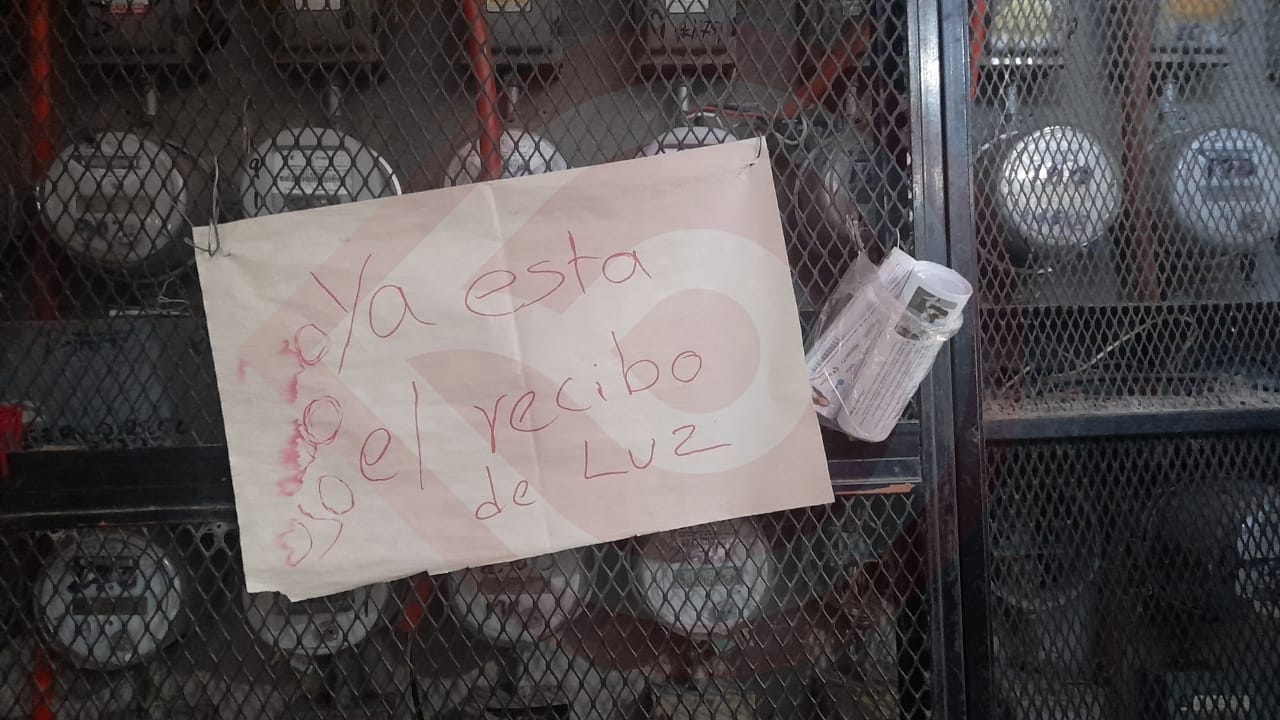 ojooo
Ya esta
el recibo
de LUZ